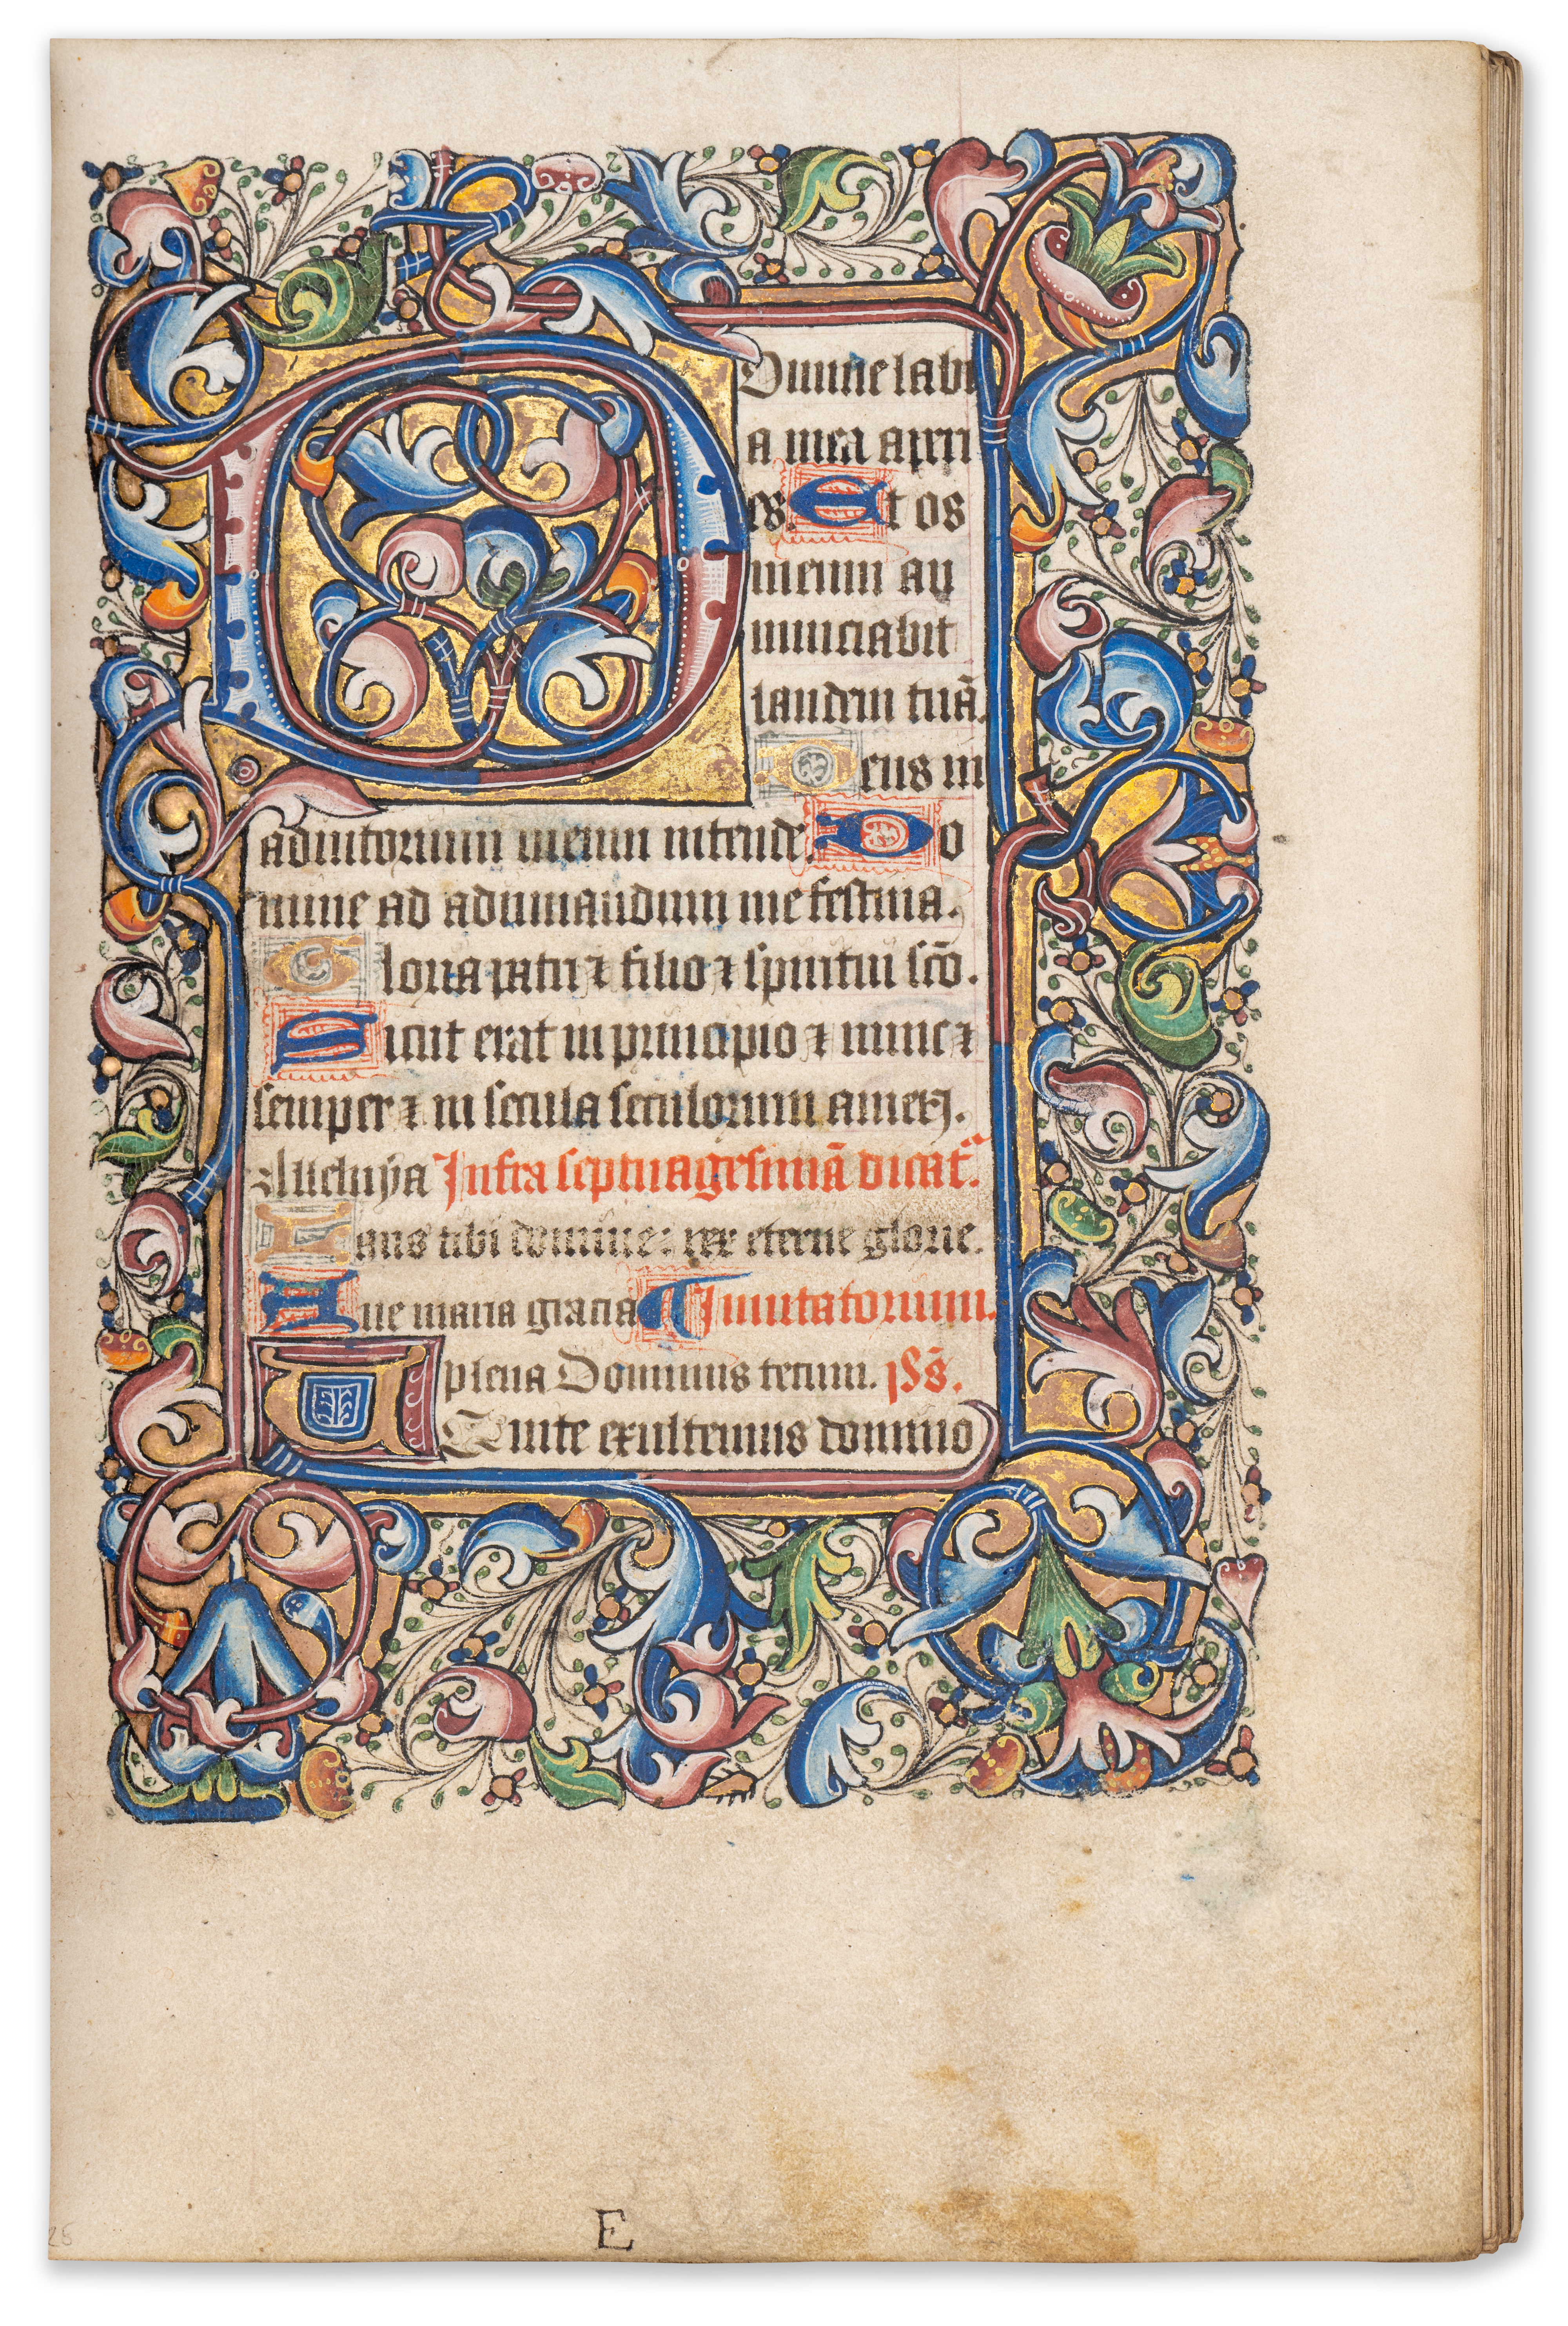 Domine labi
a mea aperi
es. Et os
meum an
nunciabit
laudem tuā.
Deus in
adiutorium meum intende. Do
mine ad adiuvandum me festina.
Gloria patri ⁊ filio ⁊ spiritui sc̄o.
Sicut erat in principio ⁊ nunc ⁊
semper ⁊ in secula seculorum amen.
Alleluya Infra septuagesimā dicat̄.
Laus tibi domine: rex eterne glorie.
Ave maria gracia Invitatorium.
plena Dominus tecum. ps̄.
Venite exultemus domino
E
25